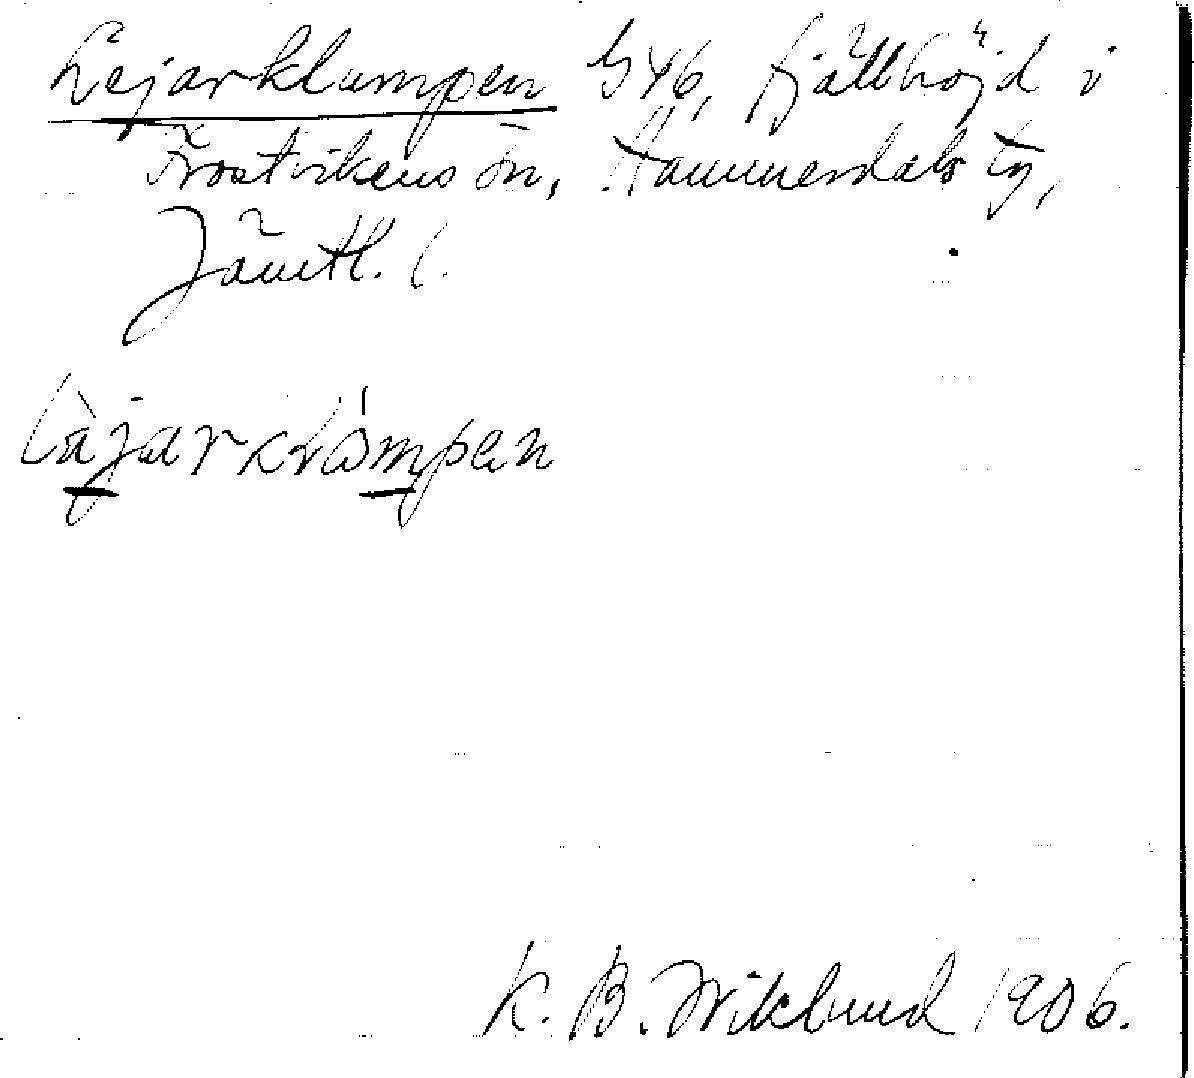 Lejarklumpen G46, fjällhöjd i
Frostvikens sn, Hammerdals tg,
Jämtl. l.
làjarklåmpen
K. B. Wiklund 1906.